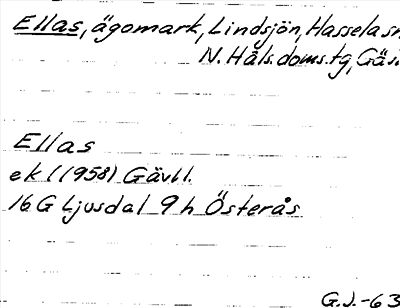 Ellas, ägomark, Lindsjön, Hassela sn
N. Häls. doms. tg, Gäv
Ellas
ek l (1958) Gävl l.
16 G Ljusdal 9 h Österås
G.J.-63